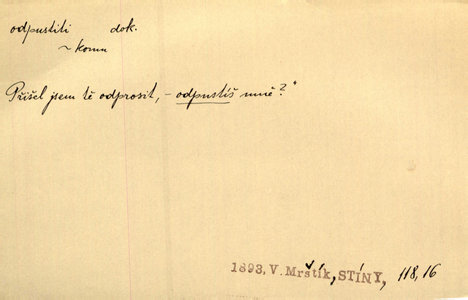 odpustiti dok.
~ komu
Přišel jsem tě odprosit, – odpustíš mně?"
1893, V. Mrštík, STÍNY, 118,16